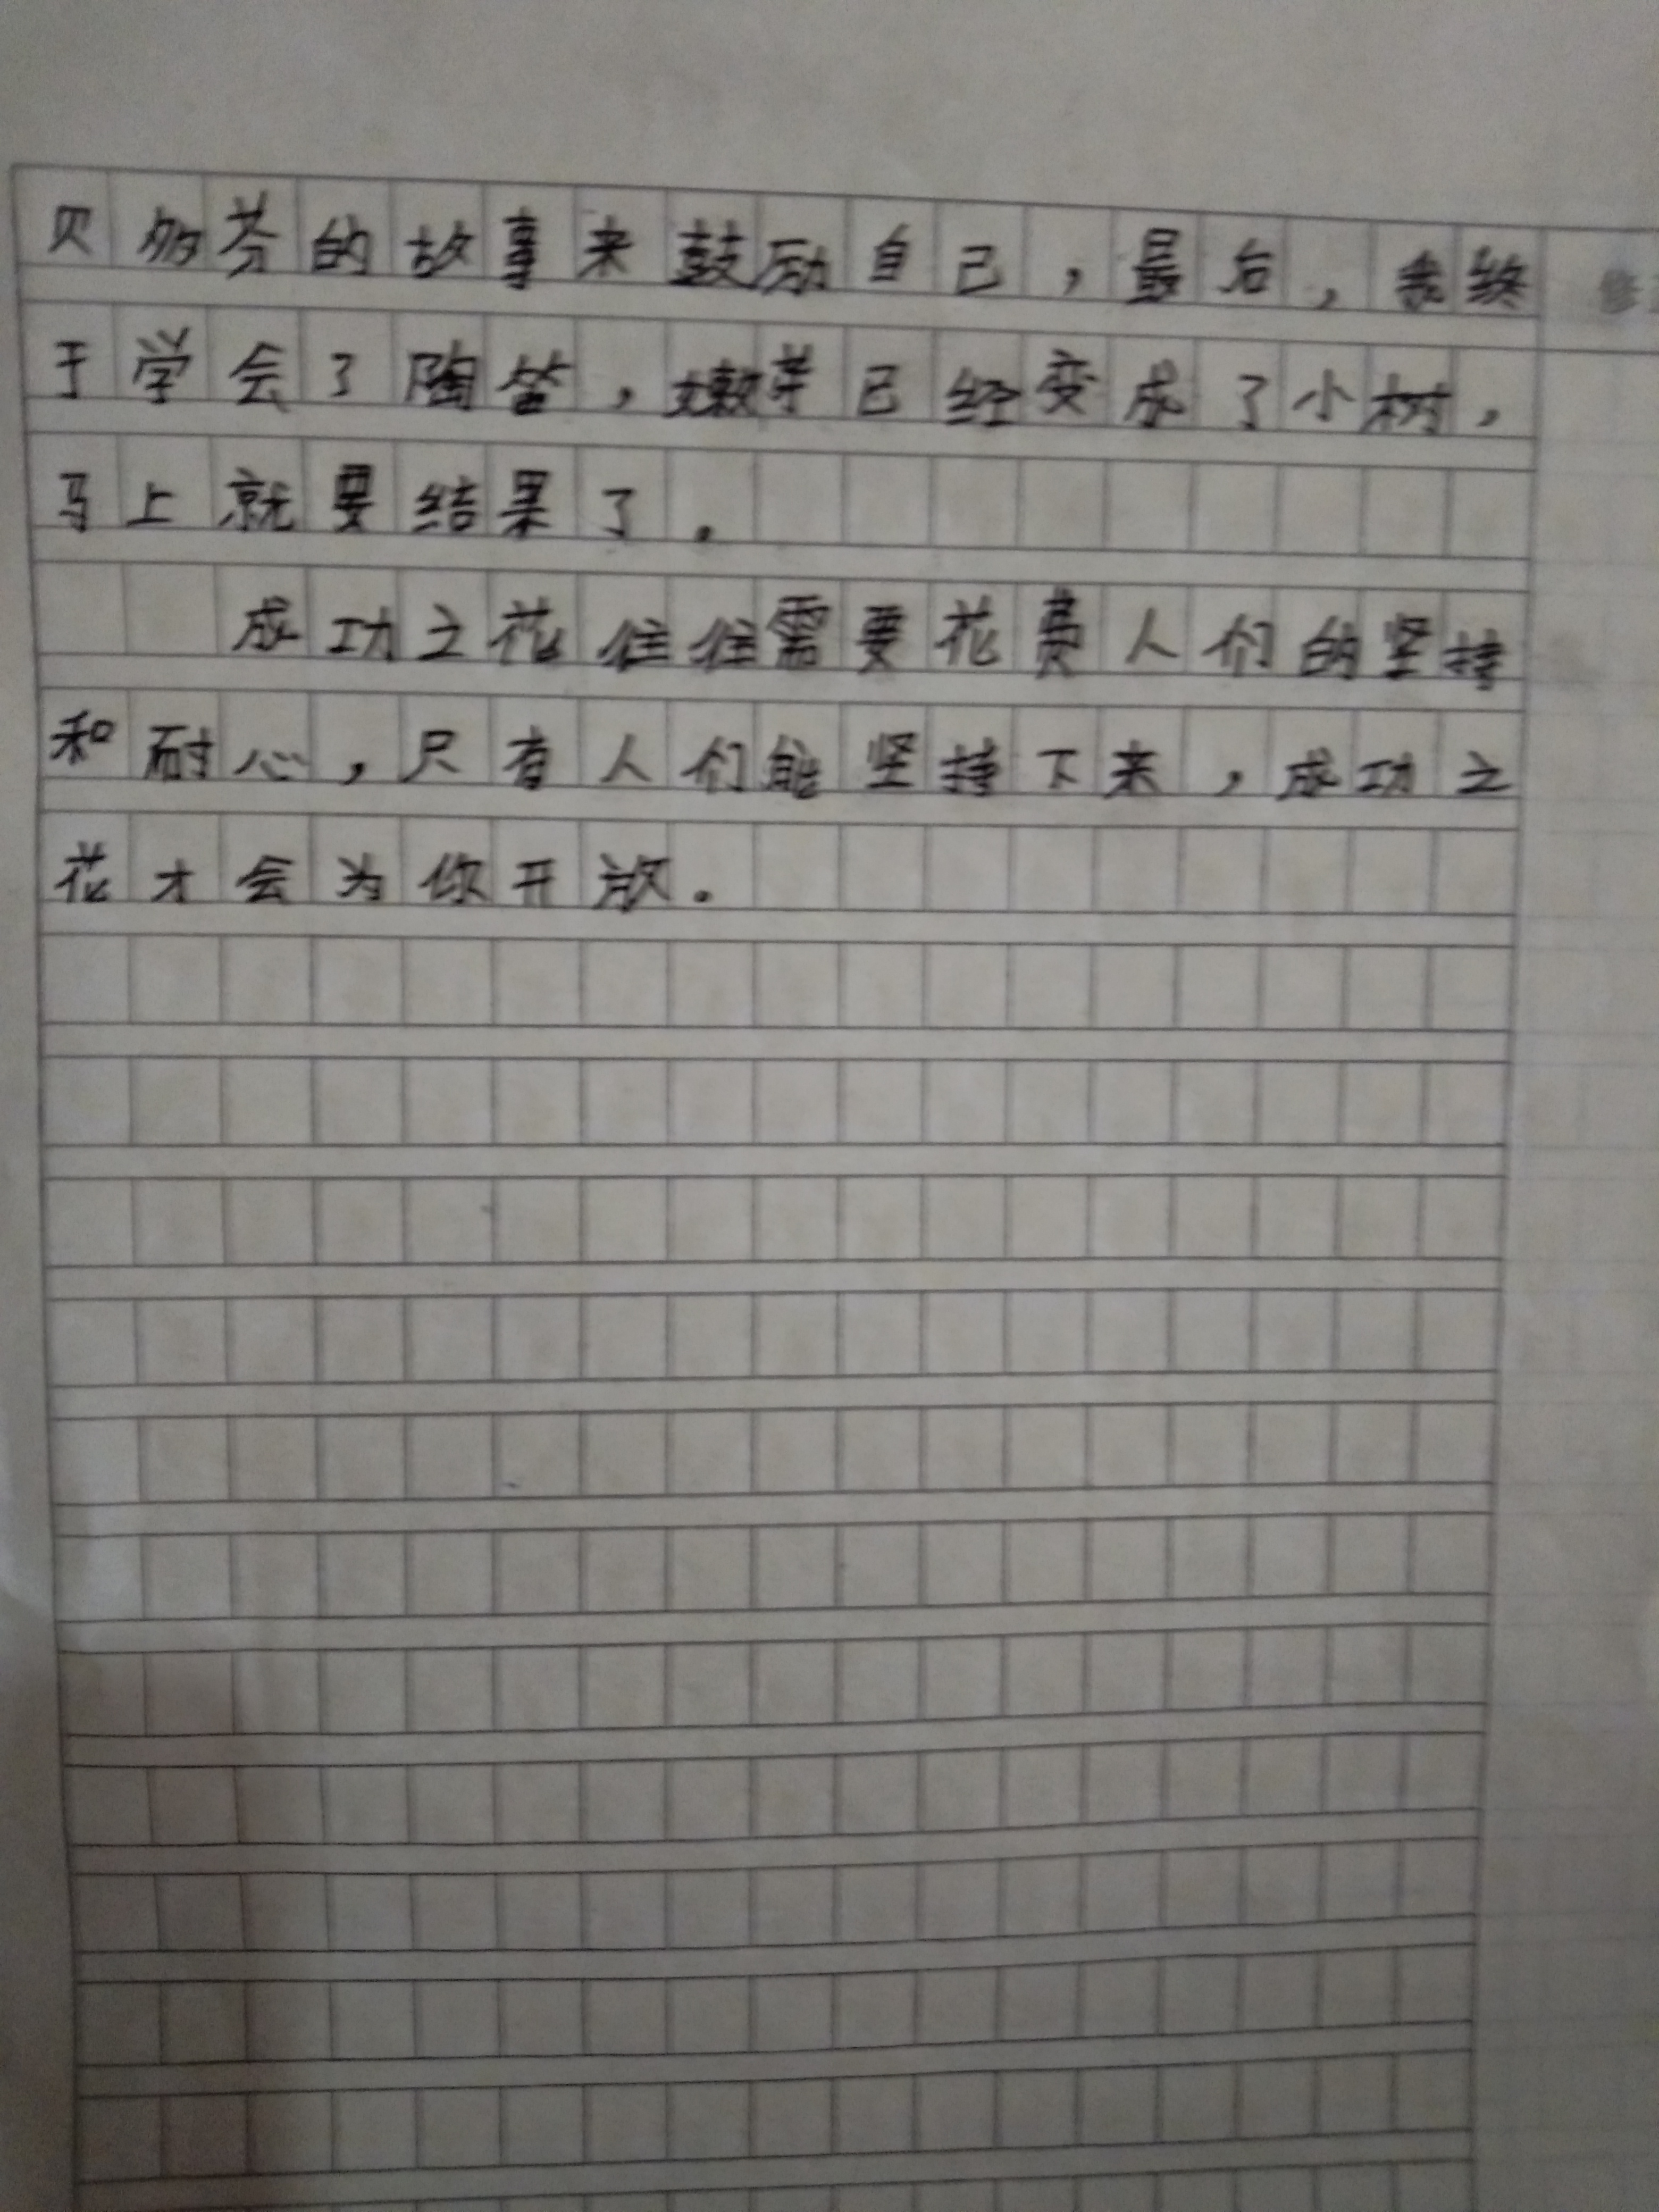 贝多芬的故事来鼓励自己，最后，我终
于学会了陶笛，嫩芽已经变成了小树，
马上就要结果了。
成功之花往往需要花费人们的坚持
和耐心，只有人们能坚持下来，成功之
花才会为你开放。